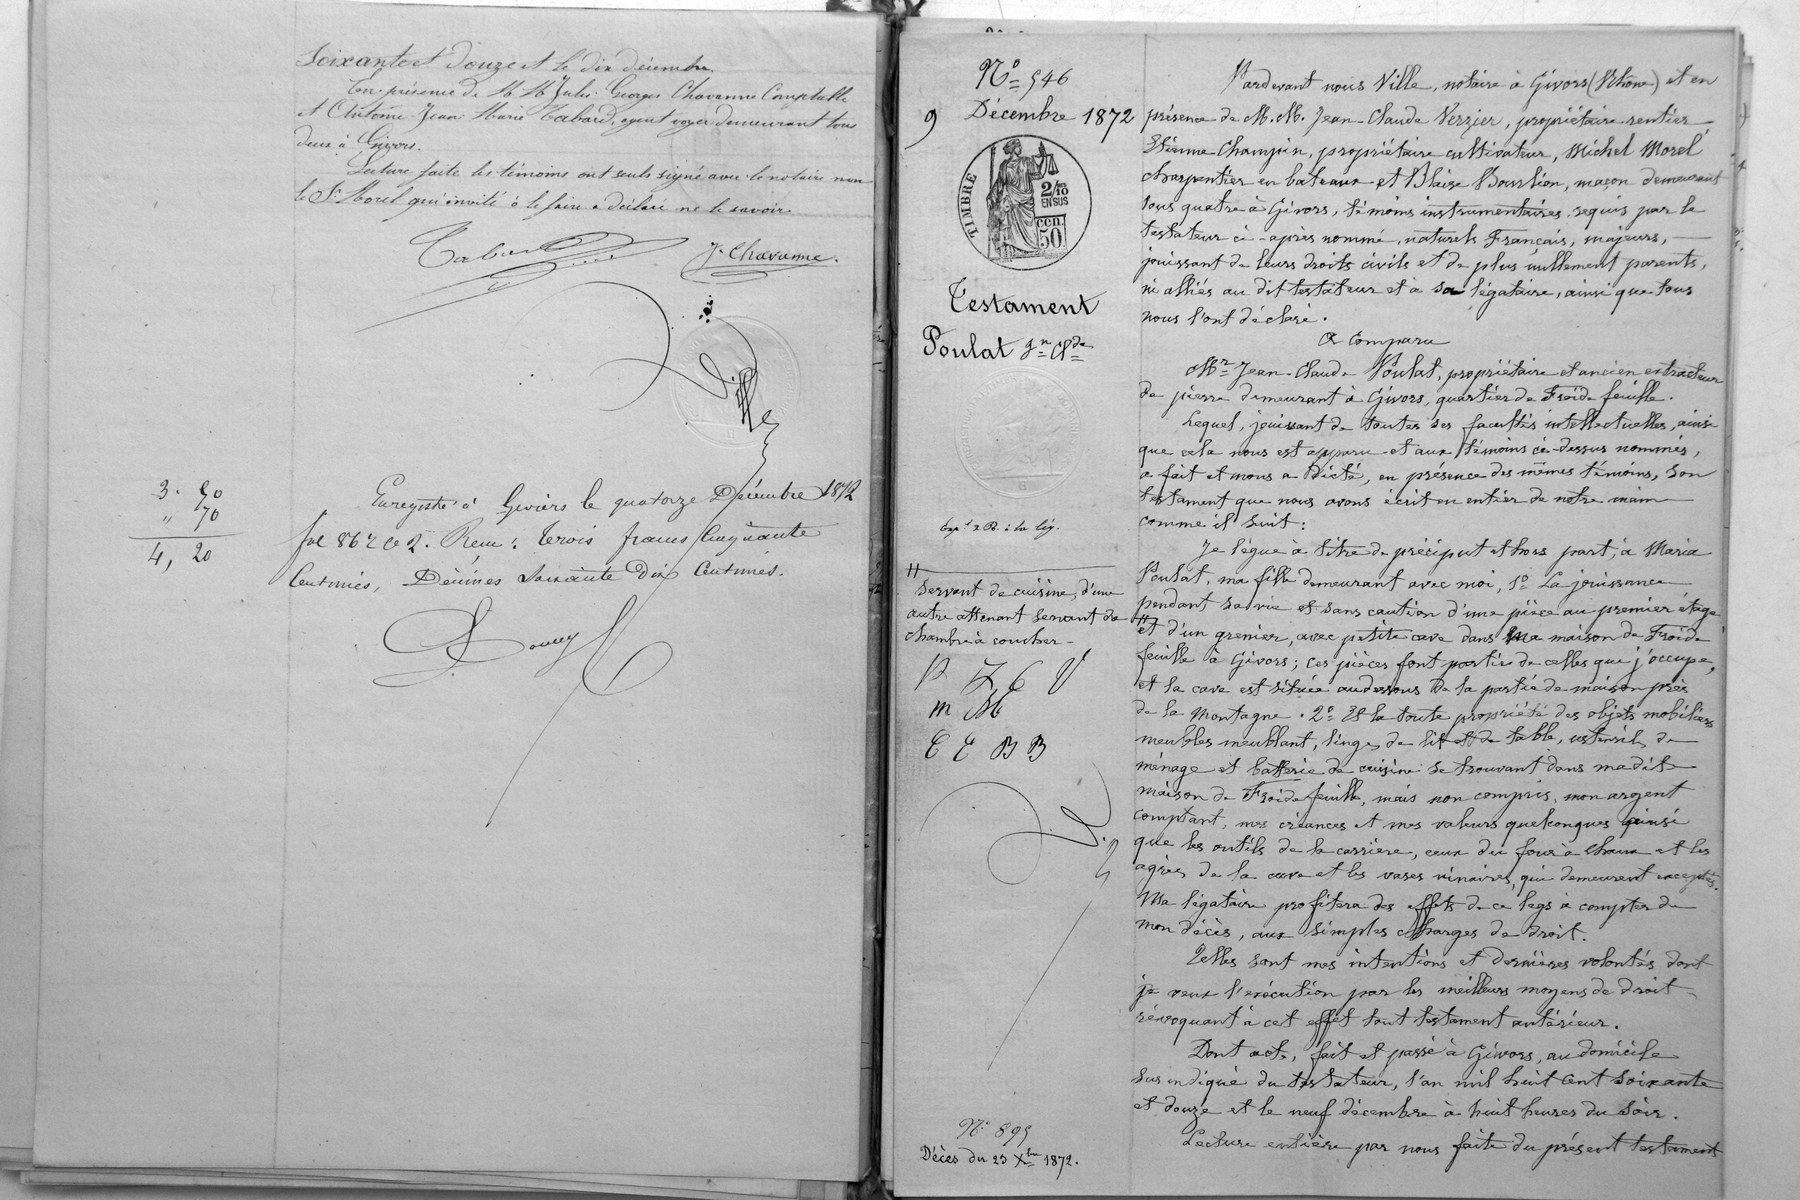 Soixante et douze et le dix décembre.
En présence de M.M. Jules Georges Chavanne Comptable
et Antoine Jean Marie Tabard, agent voyer demeurant tous
deux à Givors.
Lecture faite les témoins ont seuls signé avec le notaire non
le Sr. Morel qui invité à le faire a déclaré ne le savoir.
Tabard J. Chavanne.
Ville
3. 50
" 70
4, 20
Enregistré à Givors le quatorze Décembre 1872
fol 86 ce 2. Reçu : trois francs Cinquante
Centimes, Décimes soixante Dix Centimes.
No 546
9 Décembre 1872
TIMBRE
2/10
EN SUS
50 cen
Testament
Poulat Jn Clde
Exp. : la lég.
servant de cuisine, d'une
autre attenant servant de
chambre à coucher
P J C V
m M
C E B B
No 895
Décès du 23 Xbre 1872.
Pardevant nous Ville, notaire à Givors (Rhône) et en
présence de M.M. Jean-Claude Verzier, propriétaire rentier
Etienne Champin, propriétaire cultivateur, Michel Morel
charpentier en bateaux et Blaise Bourlion, maçon demeurant
tous quatre à Givors, témoins instrumentaires, requis par le
testateur ci-après nommé, naturels Français, majeurs,
jouissant de leurs droits civils et de plus nullement parents,
ni alliés au dit testateur et a sa légataire, ainsi que tous
nous l'ont déclaré.
A Comparu
Mr Jean-Claude Poulat, propriétaire et ancien extracteur
de pierre demeurant à Givors, quartier de Froide feuille.
Lequel, jouissant de toutes ses facultés intellectuelles, ainsi
que cela nous est apparu et aux témoins ci-dessus nommés,
a fait et nous a dicté, en présence des mêmes témoins, son
testament que nous avons écrit en entier de notre main
comme il suit :
Je lègue à titre de préciput et hors part, à Maria
Poulat, ma fille demeurant avec moi, 1o La jouissance
pendant sa vie et sans caution d'une pièce au premier étage
et d'un grenier, avec petite cave dans ma maison de Froide
feuille à Givors ; ces pièces font partie de celles que j'occupe,
et la cave est située audessous de la partie de maison près
de la Montagne. 2o Et la toute propriété des objets mobiliers
meubles meublant, linges de lit et de table, ustensils de
ménage et batterie de cuisine se trouvant dans ma dite
maison de Froide feuille, mais non compris, mon argent
comptant, mes créances et mes valeurs quelconques ainsi
que les outils de la carrière, ceux du four à chaux et les
agrès de la cave et les vases vinaires, qui demeurent exceptés.
Ma légataire profitera des effets de ce legs à compter de
mon décès, aux simples charges de droit.
Telles sont mes intentions et dernières volontés dont
je veux l'exécution par les meilleurs moyens de droit
révoquant à cet effet tout testament antérieur.
Dont acte, fait et passé à Givors, au domicile
sus indiqué du testateur, l'an mil huit cent soixante
et douze et le neuf décembre à huit heures du soir.
Lecture entière par nous faite du présent testament